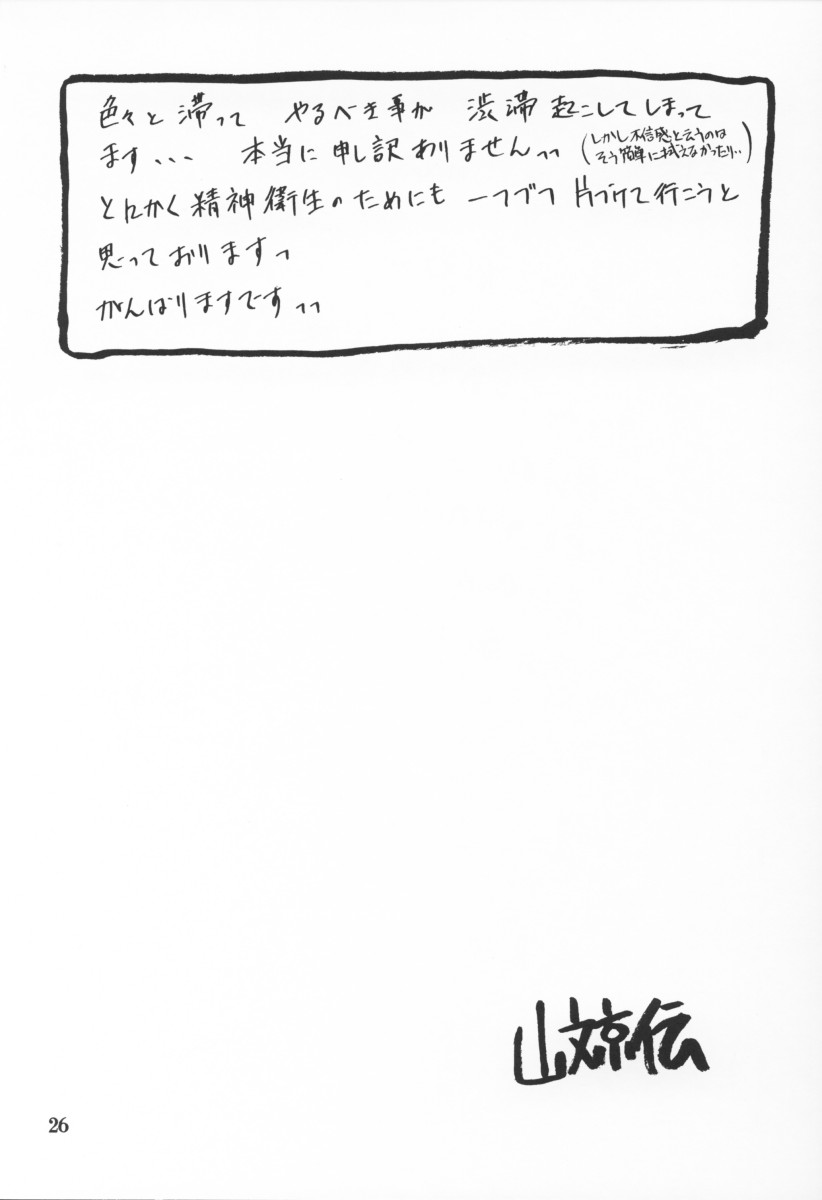 色々と滞って やるべき事が 渋滞起こしてしまって
ます、、、 本当に申し訳ありません、、
(しかし不信感と云うのは
そう簡単に拭えなかったり‥)
とにかく精神衛生のためにも 一つづつ 片づけて行こうと
思っておりますっ
がんばりますですっっ
山文京伝
26